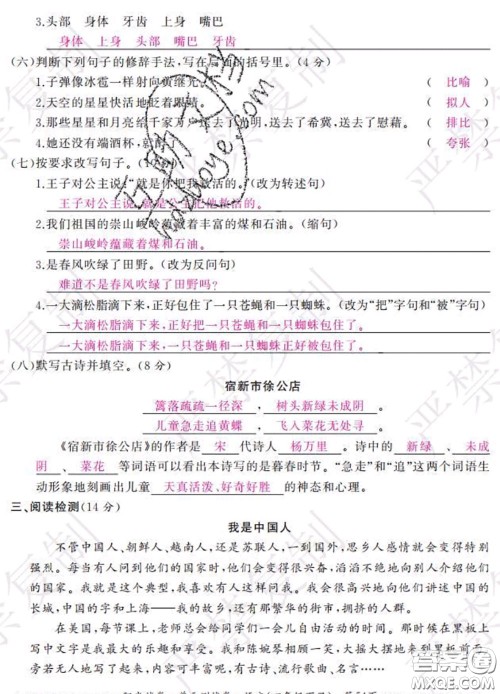 3.头部 身体 牙齿 上身 嘴巴
身体 上身 头部 嘴巴 牙齿
(六)判断下列句子的修辞手法,写在后面的括号里。(4分)
1.子弹像冰雹一样射向黄继光。 ( 比喻 )
2.天空的星星快活地眨着眼睛。 ( 拟人 )
3.那些星星和月亮给千家万户送去了光明,送去了希冀,送去了慰藉。 ( 排比 )
4.她还没有端酒杯,就醉了。 ( 夸张 )
(七)按要求改写句子。
1.王子对公主说:“就是你把我救活的。”(改为转述句)
王子对公主说,就是公主把他救活的。
2.我们祖国的崇山峻岭蕴藏着丰富的煤和石油。(缩句)
崇山峻岭蕴藏着煤和石油。
3.是春风吹绿了田野。(改为反问句)
难道不是春风吹绿了田野吗?
4.一大滴松脂滴下来,正好包住了一只苍蝇和一只蜘蛛。(改为“把”字句和“被”字句)
一大滴松脂滴下来,正好把一只苍蝇和一只蜘蛛包住了。
一大滴松脂滴下来,一只苍蝇和一只蜘蛛正好被包住了。
(八)默写古诗并填空。(8分)
宿新市徐公店
篱落疏疏一径深 , 树头新绿未成阴 。
儿童急走追黄蝶 , 飞入菜花无处寻 。
《宿新市徐公店》的作者是 宋 代诗人 杨万里 。诗中的 新绿 、 未成
阴 、 菜花 等词语可以看出本诗写的是暮春时节。“急走”和“追”这两个词语生
动形象地刻画出儿童 天真活泼、好奇好胜 的神态和心理。
三、阅读检测(14分)
我是中国人
不管中国人、朝鲜人、越南人,还是苏联人,一到国外,思乡人感情就会变得特别
强烈。每当有人问到他们的国家时,他们会变得很兴奋,滔滔不绝地向别人介绍他们
的国家。我就是这个典型,我喜欢有人这样问我。我会很高兴地向他们讲述中国的
长城,中国的字和上海——我的故乡,还有那繁华的街市,拥挤的人群。
在美国,每节课上,老师总会给同学们一会儿自由活动的时间。那时候在黑板上
写中文字是我最大的乐趣和享受。我和陈婉琴相顾一笑,大摇大摆地来到黑板前,
旁若无人地写了起来,内容可丰富呢,有古诗、流行歌曲、名言……